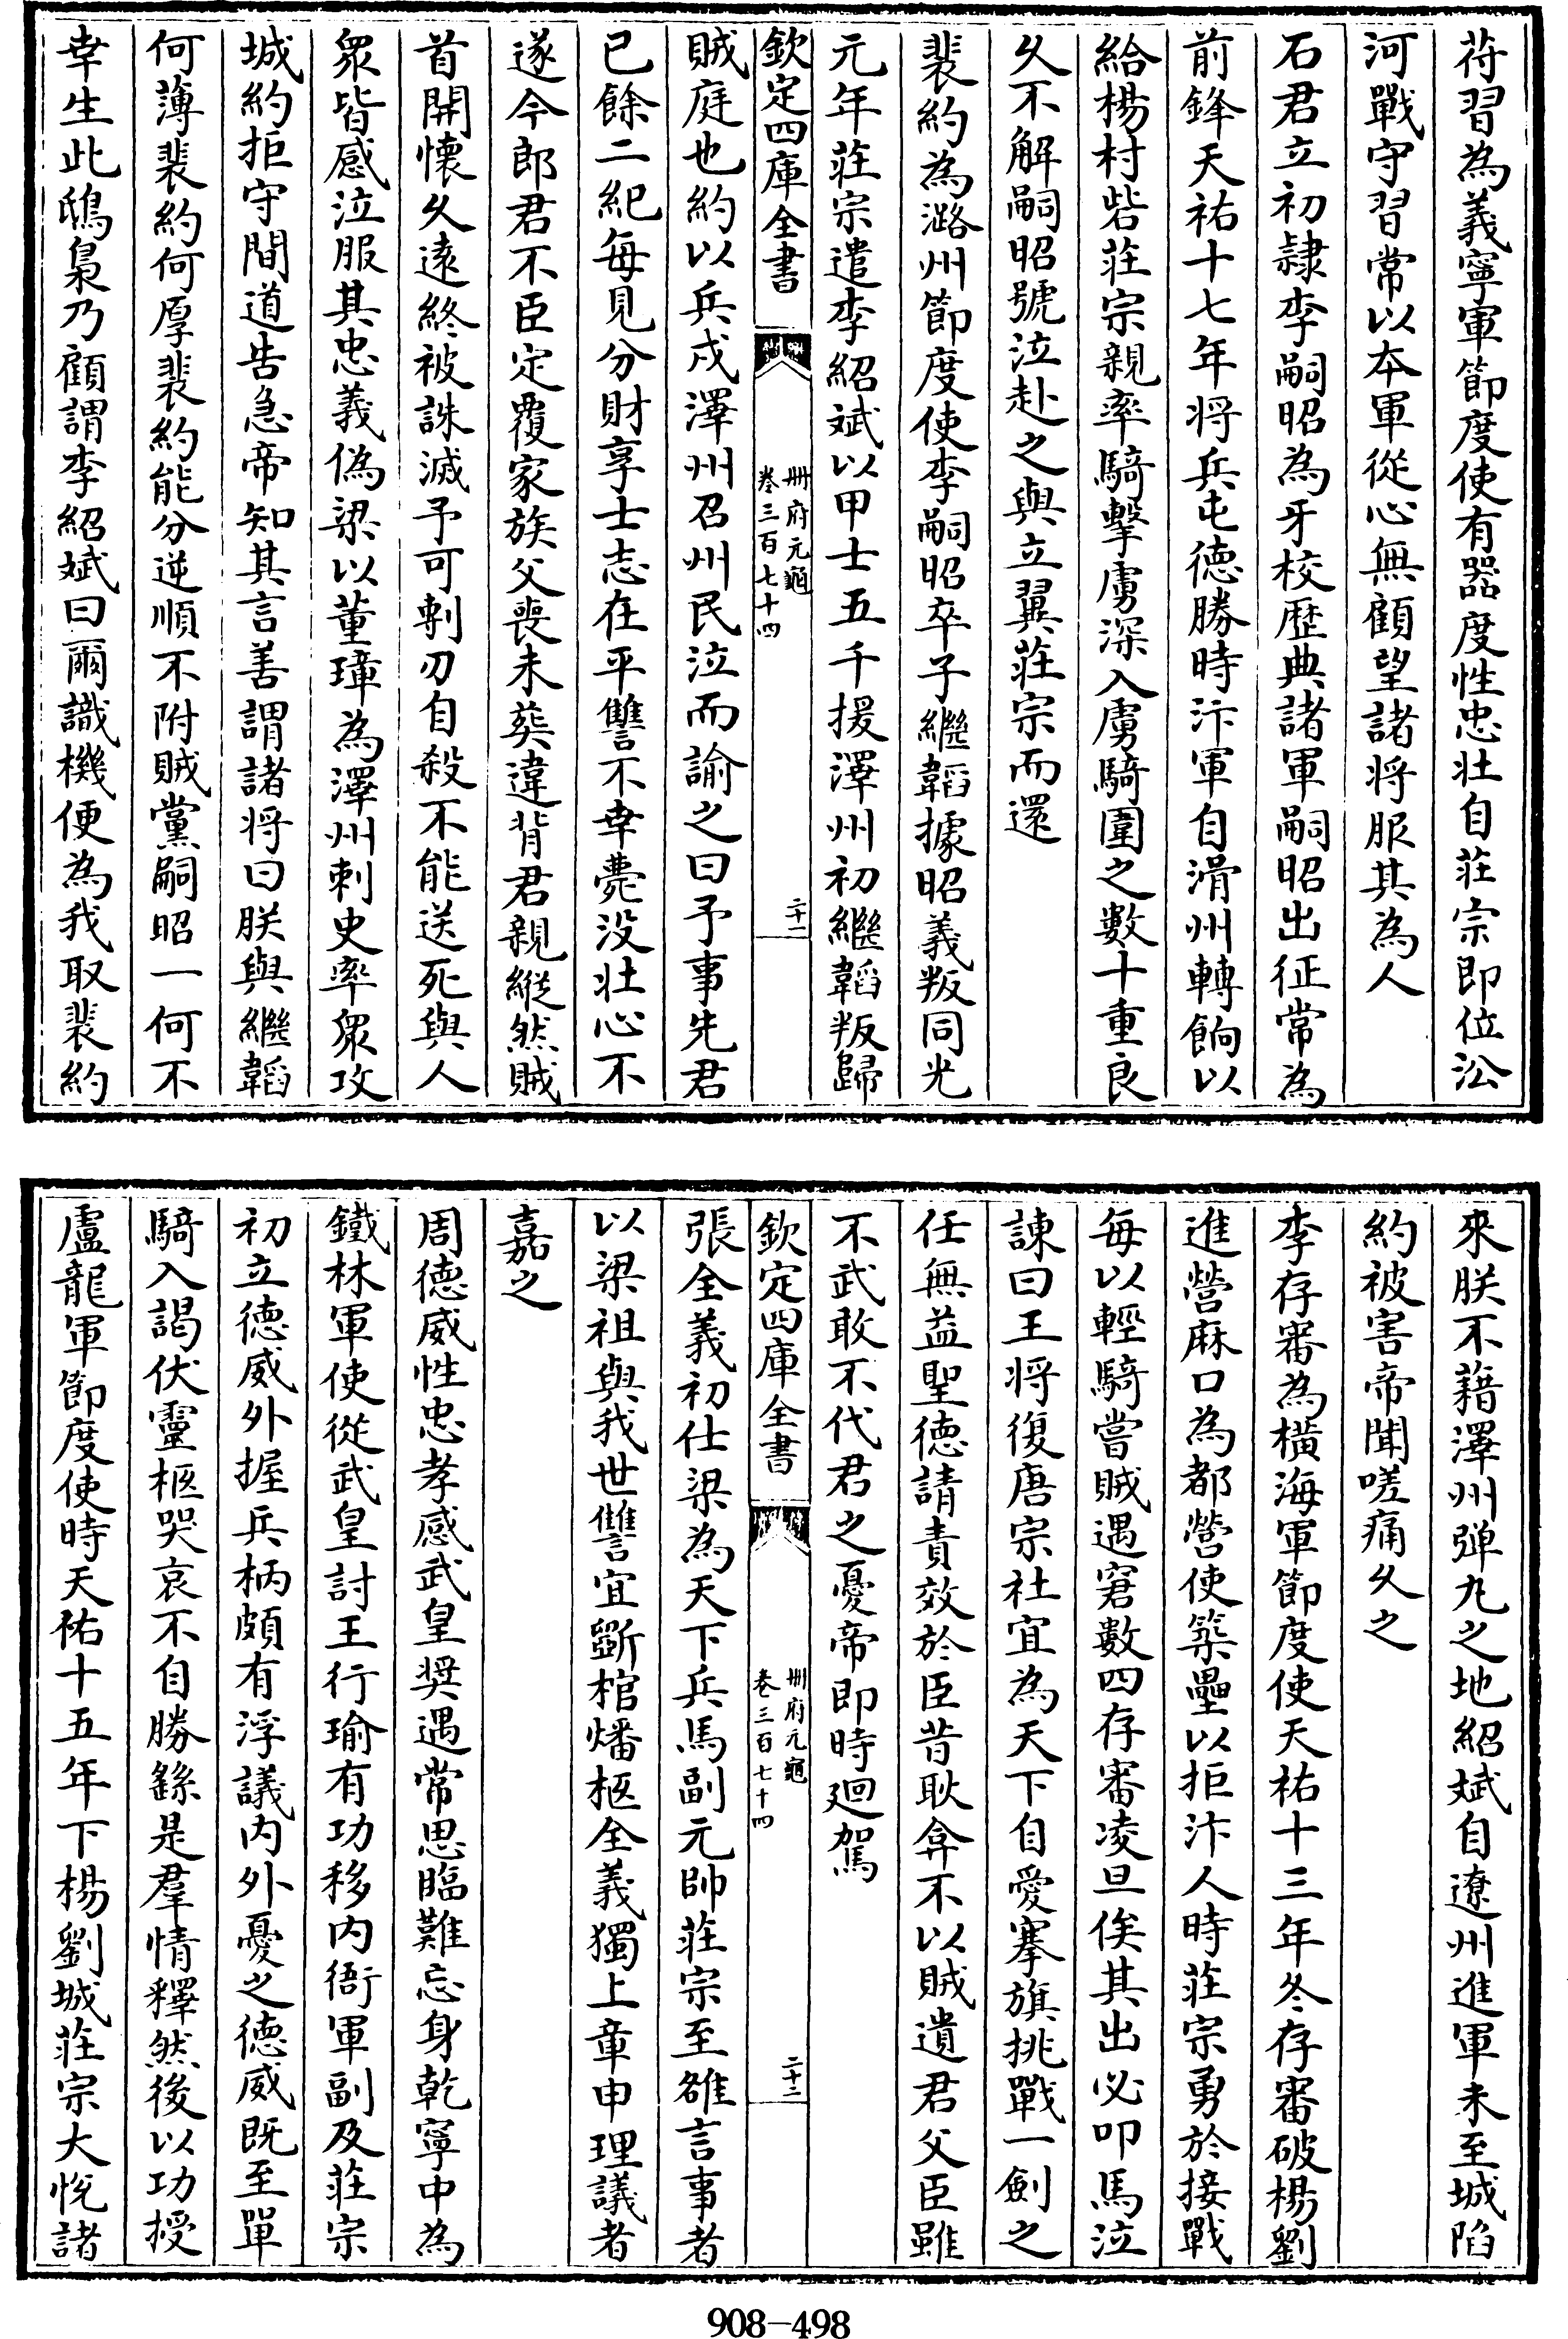 苻習為義寧軍節度使有器度性忠壯自莊宗即位㳂
河戰守習常以本軍從心無顧望諸将服其為人
石君立初隷李嗣昭為牙校歴典諸軍嗣昭出征常為
前鋒天祐十七年将兵屯徳勝時汴軍自滑州轉餉以
給楊村砦莊宗親率騎擊虜深入虜騎圍之數十重良
乆不解嗣昭號泣赴之與立翼莊宗而還
裴約為潞州節度使李嗣昭卒子繼韜據昭義叛同光
元年莊宗遣李紹斌以甲士五千援澤州初繼韜叛歸
欽定四庫全書
冊府元龜
卷三百七十四
二十一
賊庭也約以兵戍澤州召州民泣而諭之曰予事先君
已餘二紀每見分財享士志在平讐不幸薨没壯心不
遂今郎君不臣定覆家族父喪未葬違背君親縱然賊
首開懐乆逺終被誅滅予可剚刃自殺不能送死與人
衆皆感泣服其忠義偽梁以董璋為澤州刺史率衆攻
城約拒守間道告急帝知其言善謂諸将曰朕與繼韜
何薄裴約何厚裴約能分逆順不附賊黨嗣昭一何不
幸生此鴟梟乃顧謂李紹斌曰爾識機便為我取裴約
來朕不藉澤州弹丸之地紹斌自遼州進軍未至城陷
約被害帝聞嗟痛乆之
李存審為橫海軍節度使天祐十三年冬存審破楊劉
進營麻口為都營使築壘以拒汴人時莊宗勇於接戰
每以輕騎嘗賊遇窘數四存審凌旦俟其出必叩馬泣
諫曰王将復唐宗社宜為天下自愛搴旗挑戰一劍之
任無益聖徳請責效於臣昔耿弇不以賊遺君父臣雖
不武敢不代君之憂帝即時廻駕
欽定四庫全書
冊府元龜
卷三百七十四
二十二
張全義初仕梁為天下兵馬副元帥莊宗至雒言事者
以梁祖與我世讐宜斵棺燔柩全義獨上章申理議者
嘉之
周徳威性忠孝感武皇奨遇常思臨難忘身乾寧中為
鐵林軍使從武皇討王行瑜有功移内衙軍副及莊宗
初立徳威外握兵柄頗有浮議内外憂之徳威既至單
騎入謁伏靈柩哭哀不自勝繇是羣情釋然後以功授
盧龍軍節度使時天祐十五年下楊劉城莊宗大悦諸
908-498